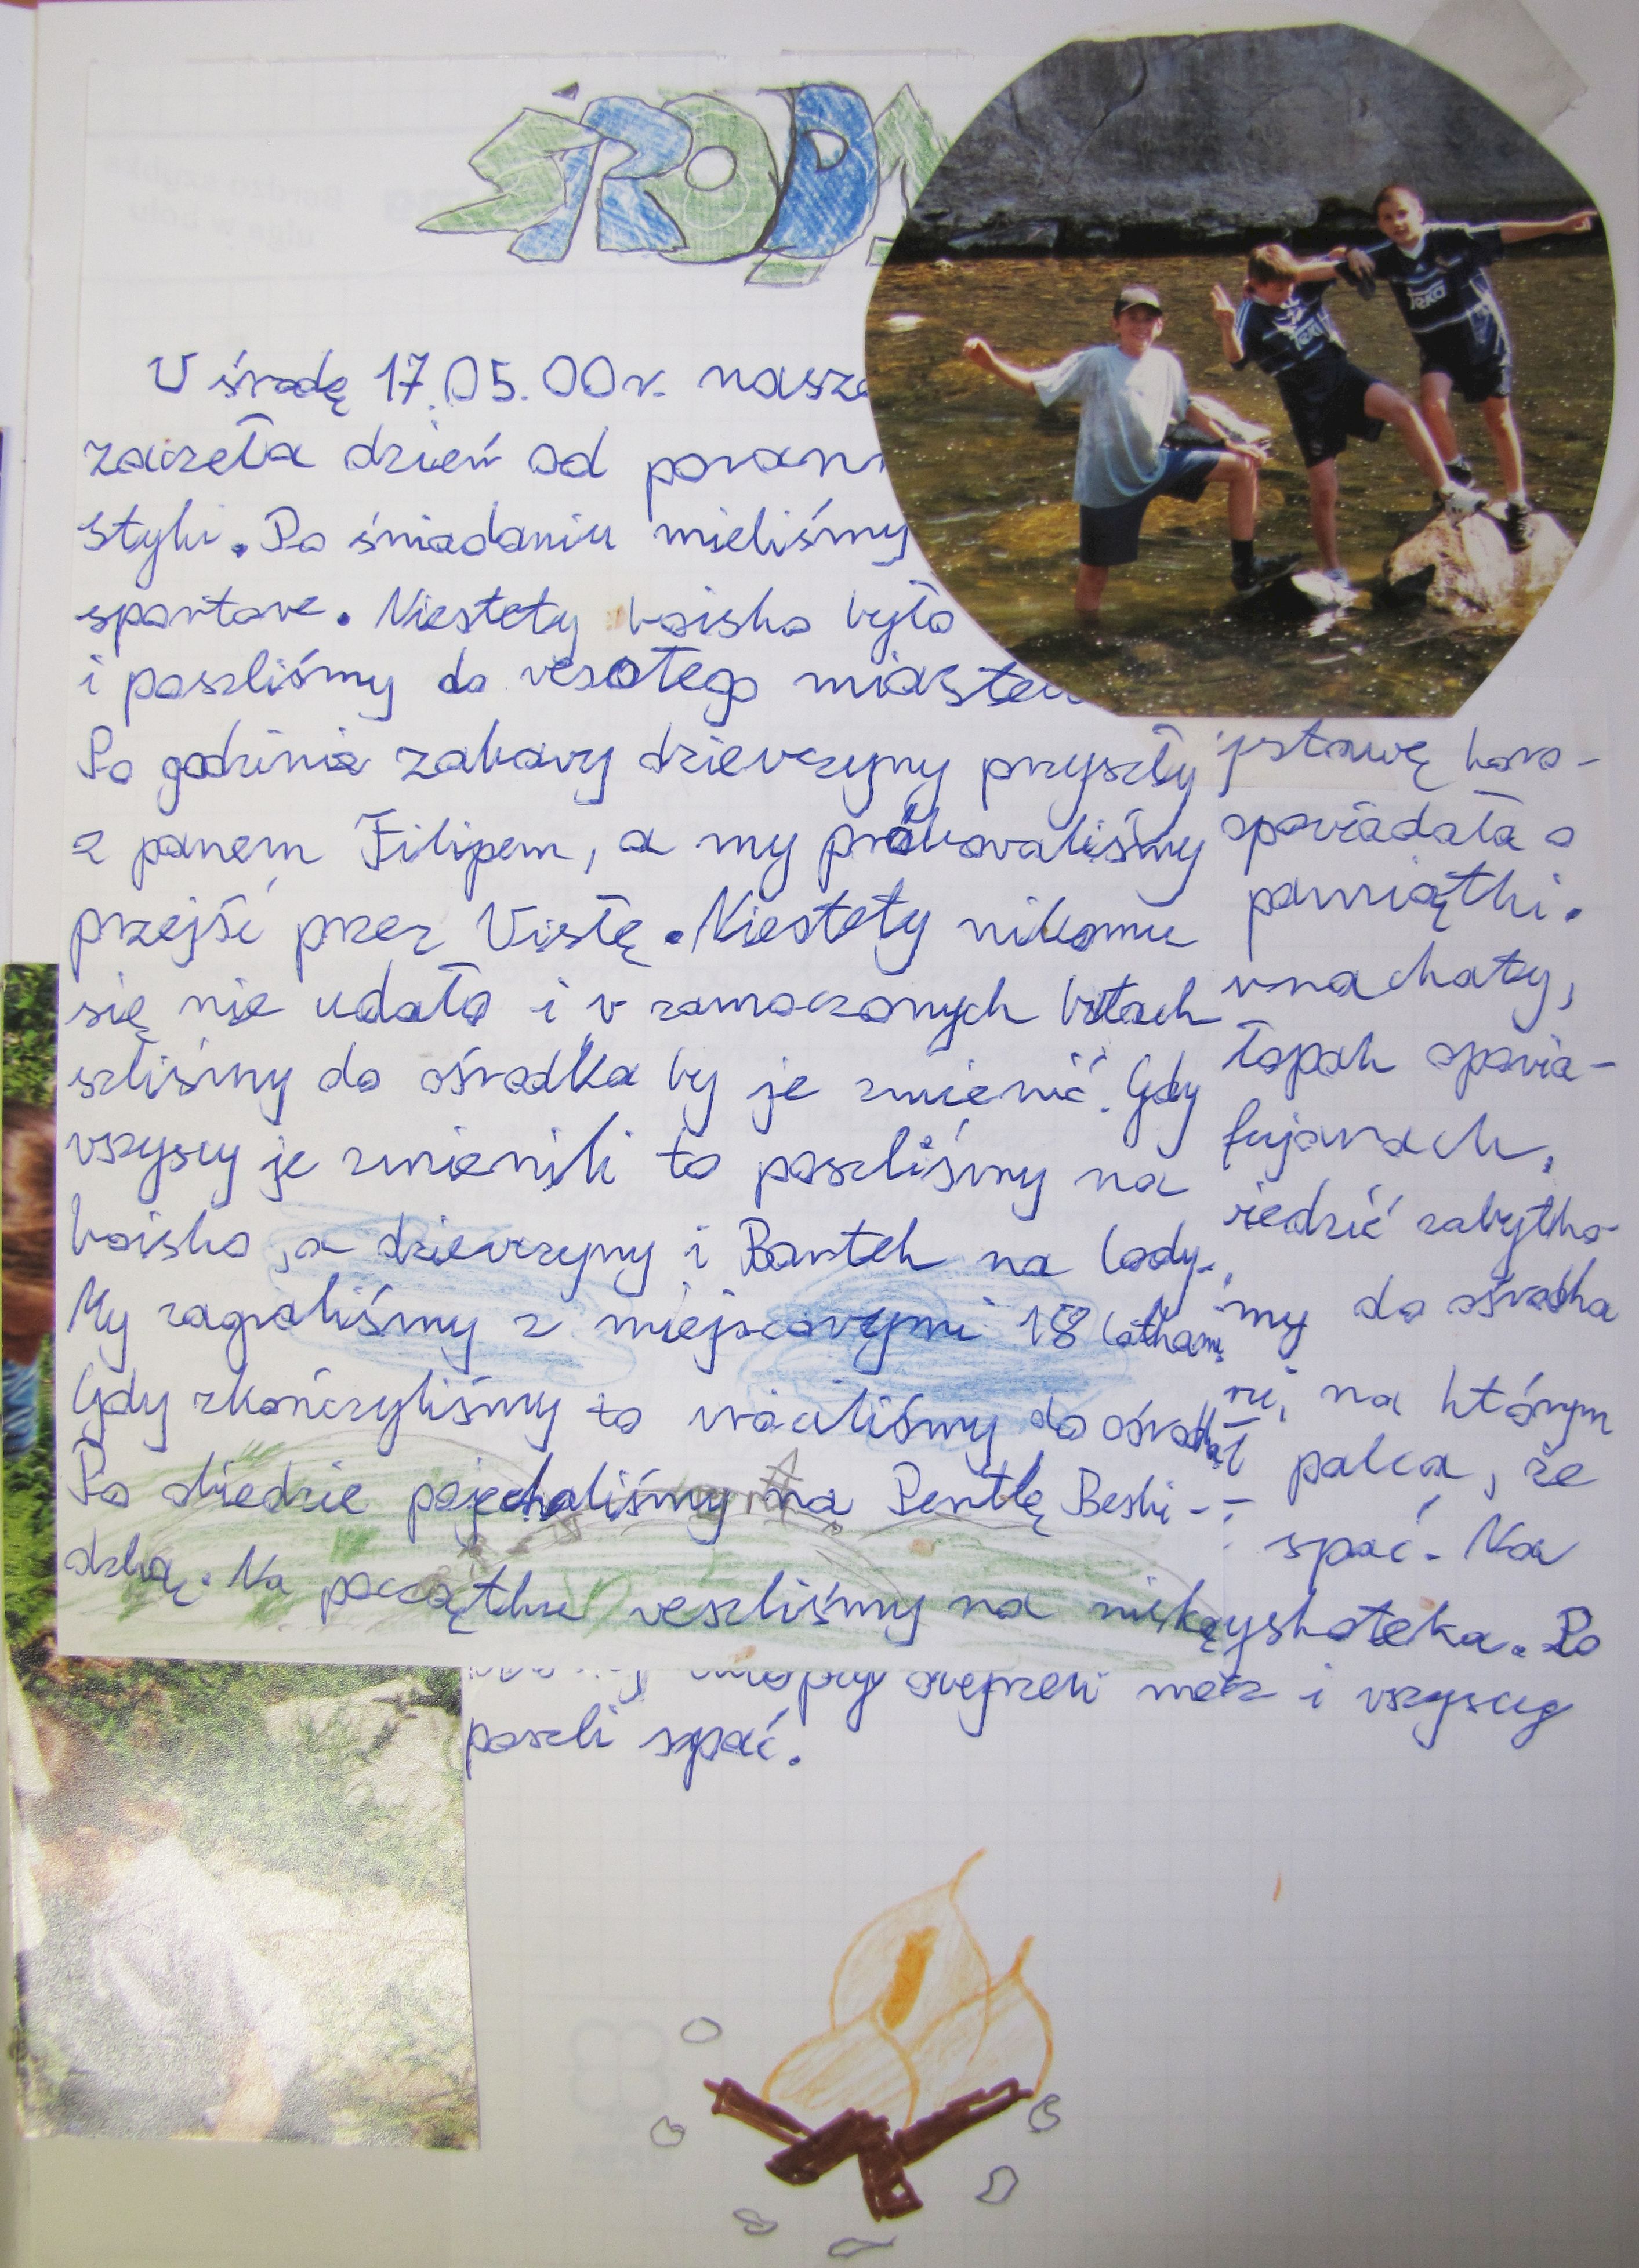 ŚRODA
W środę 17.05.00r. nasza
zaczeła dzień od porann
styki. Po śniadaniu mieliśmy
sportowe. Niestety boisko było
i poszliśmy do wesołego miastecz
Po godzinie zabawy dziewczyny przyszły
z panem Filipem, a my próbowaliśmy
przejść przez Wisłę. Niestety nikomu
się nie udało i w zamoczonych butach
szliśmy do ośrodka by je zmienić. Gdy
wszyscy je zmienili to poszliśmy na
boisko, a dziewczyny i Bartek na lody.
My zagraliśmy z miejscowymi 18 latkami
Gdy zkończyliśmy to wróciliśmy do ośrodka
Po obiedzie pojechaliśmy na Pentlę Beski-
dzką. Na początku weszliśmy na
ystawę koro-
opowiadała o
pamiątki.
wnachaty,
łopak opowia-
fujarach,
iedzić zabytko-
my do ośrodka
na którym
palca, że
spać. Na
yskoteka. Po
mecz i wszyscy
poszli spać.
TEKA
TEKA